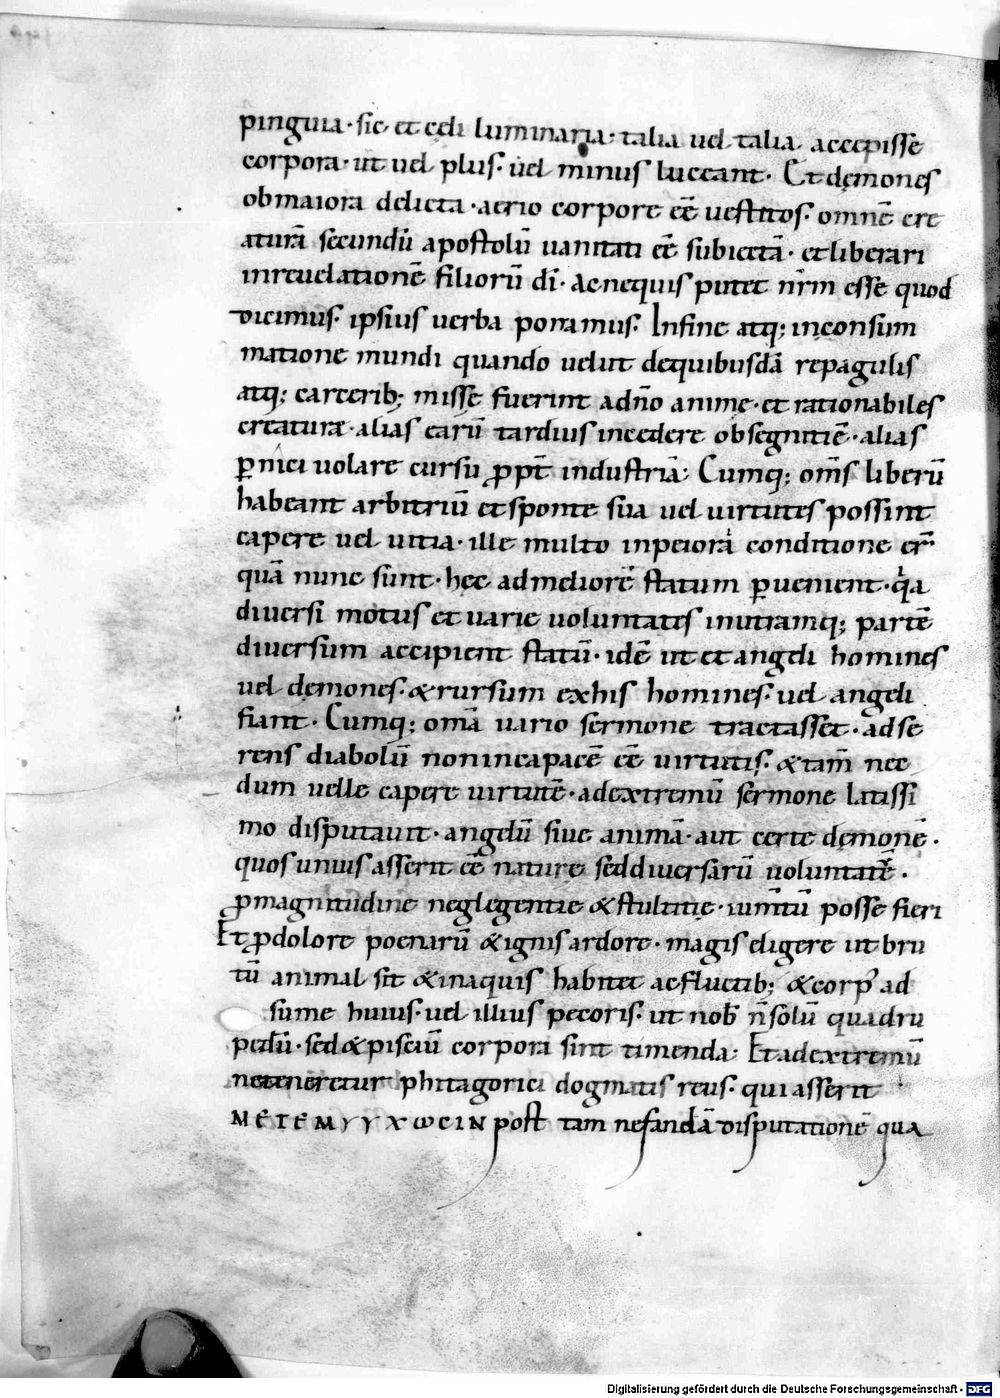 pinguia· sic et cęli luminaria· talia uel talia accepisse
corpora· ut uel plus· uel minus luceant· Et dęmones
obmaiora delicta· aerio corpore eē uestitos· omnē cre
aturā secundū apostolū uanitati eē subiectā· et liberari
inreuelationē filiorū dī· Acnequis putet nrm̄ esse quod
dicimus· ipsius uerba ponamus· Infine atq; inconsum
matione mundi quando uelut dequibusdā repagulis
atq; carcerib; misse fuerint adn̄o anime· et rationabiles
creaturæ· alias earū tardius incedere obsegnitiē· alias
ꝑnici uolare cursu ꝓpt̄ industriā· Cumq; om̄s liberū
habeant arbitriū et sponte sua uel uirtutes possint
capere uel uitia· ille multo inpeiorā conditione er̄·
quā nunc sunt· hęc admeliorē statum ꝑuenient· qa
diuersi motus et uarie uoluntates inutramq; partē
diuersum accipient statū· idē ut et angeli homines
uel dęmones· & rursum exhis homines· uel angeli
fiant· Cumq; om̄a uario sermone tractasset· adse
rens diabolū nonincapacē eē uirtutis· & tam̄ nec
dum uelle capere uirtutē· adextremū sermone latissi
mo disputauit· angelū siue animā· aut certe dęmonē·
quos unius asserit eē nature sed diuersarū uoluntatē·
ꝓmagnitudine neglegentie & stultitie· iumtū posse fieri
Et ꝓdolore poenarū & ignis ardore· magis eligere ut bru
tū animal sit & inaquis habitet ac fluctib; & corp' ad
sume huius· uel illius pecoris· ut nob̄ n̄ solū quadru
pedū· sed & pisciū corpora sint timenda· Et adextremū
neteneretur phitagorici dogmatis reus· qui asserit
ΜΕΤΕΜΥΥΧΩCΙΝ post tam nefandā disputationē qua
Digitalisierung gefördert durch die Deutsche Forschungsgemeinschaft - DFG